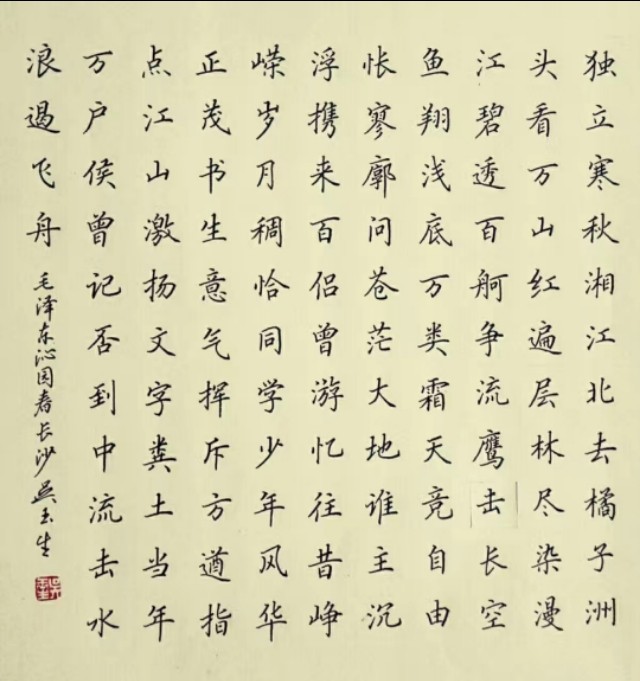 独立寒秋湘江北去橘子洲
头看万山红遍层林尽染漫
江碧透百舸争流鹰击长空
鱼翔浅底万类霜天竞自由
怅寥廓问苍茫大地谁主沉
浮携来百侣曾游忆往昔峥
嵘岁月稠恰同学少年风华
正茂书生意气挥斥方遒指
点江山激扬文字粪土当年
万户侯曾记否到中流击水
浪遏飞舟 毛泽东沁园春长沙 吴玉生